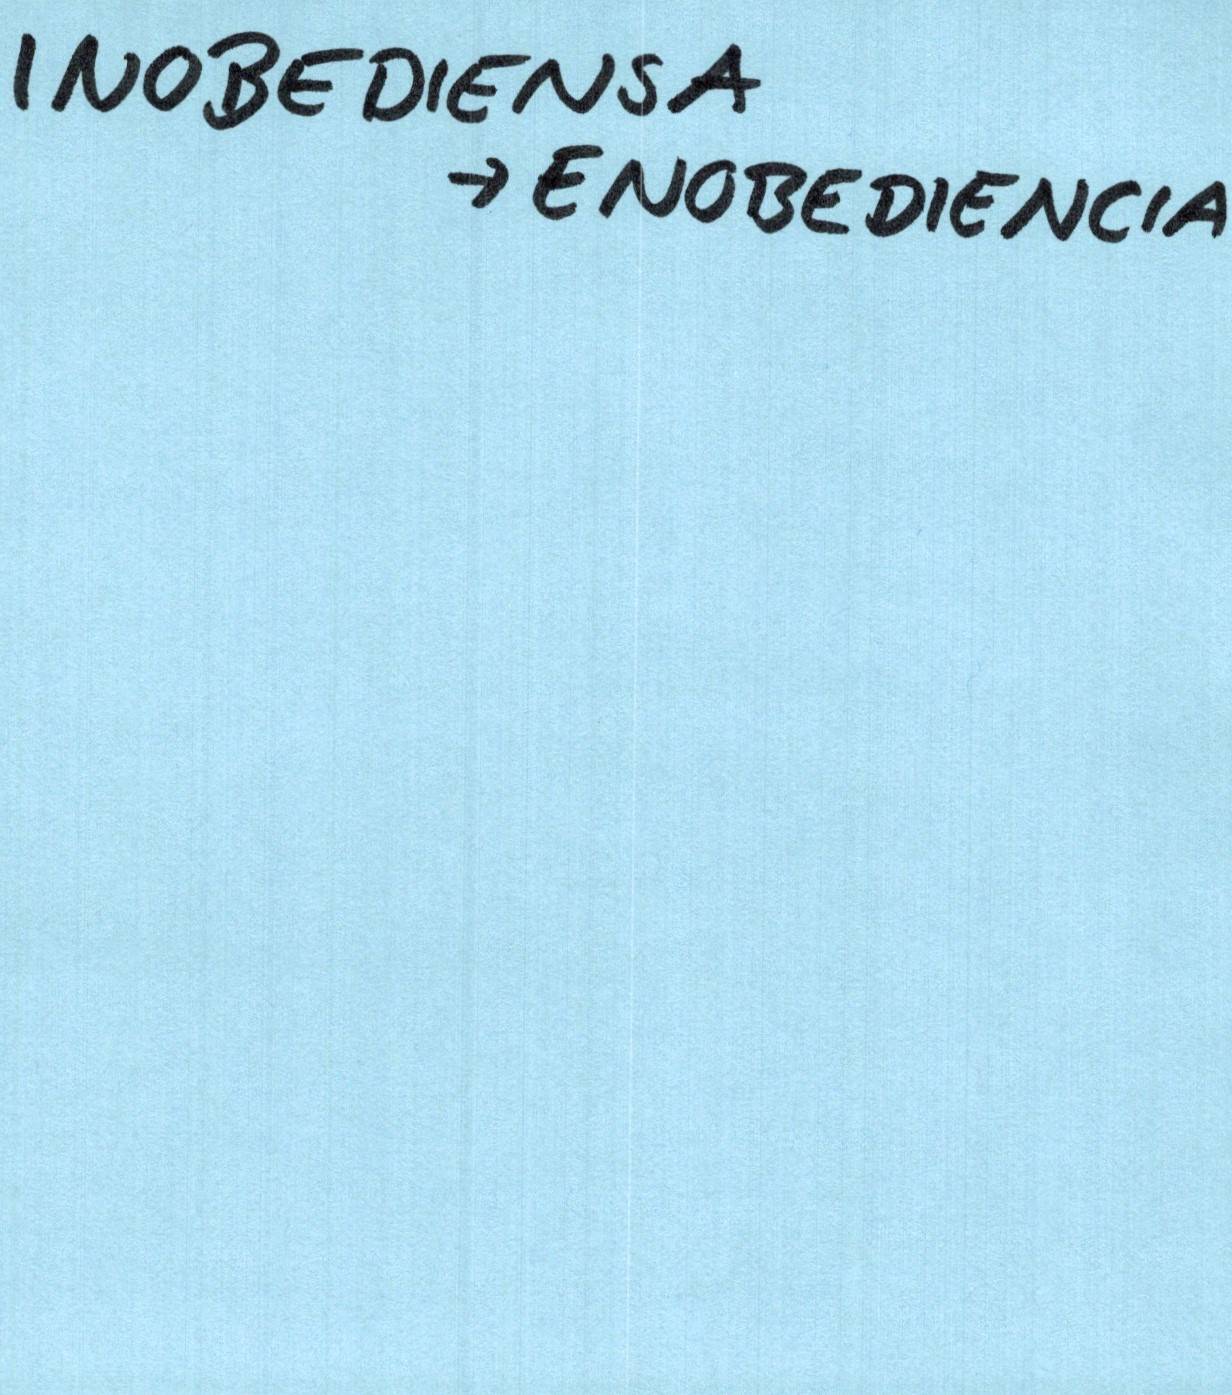 INOBEDIENSA
→ ENOBEDIENCIA